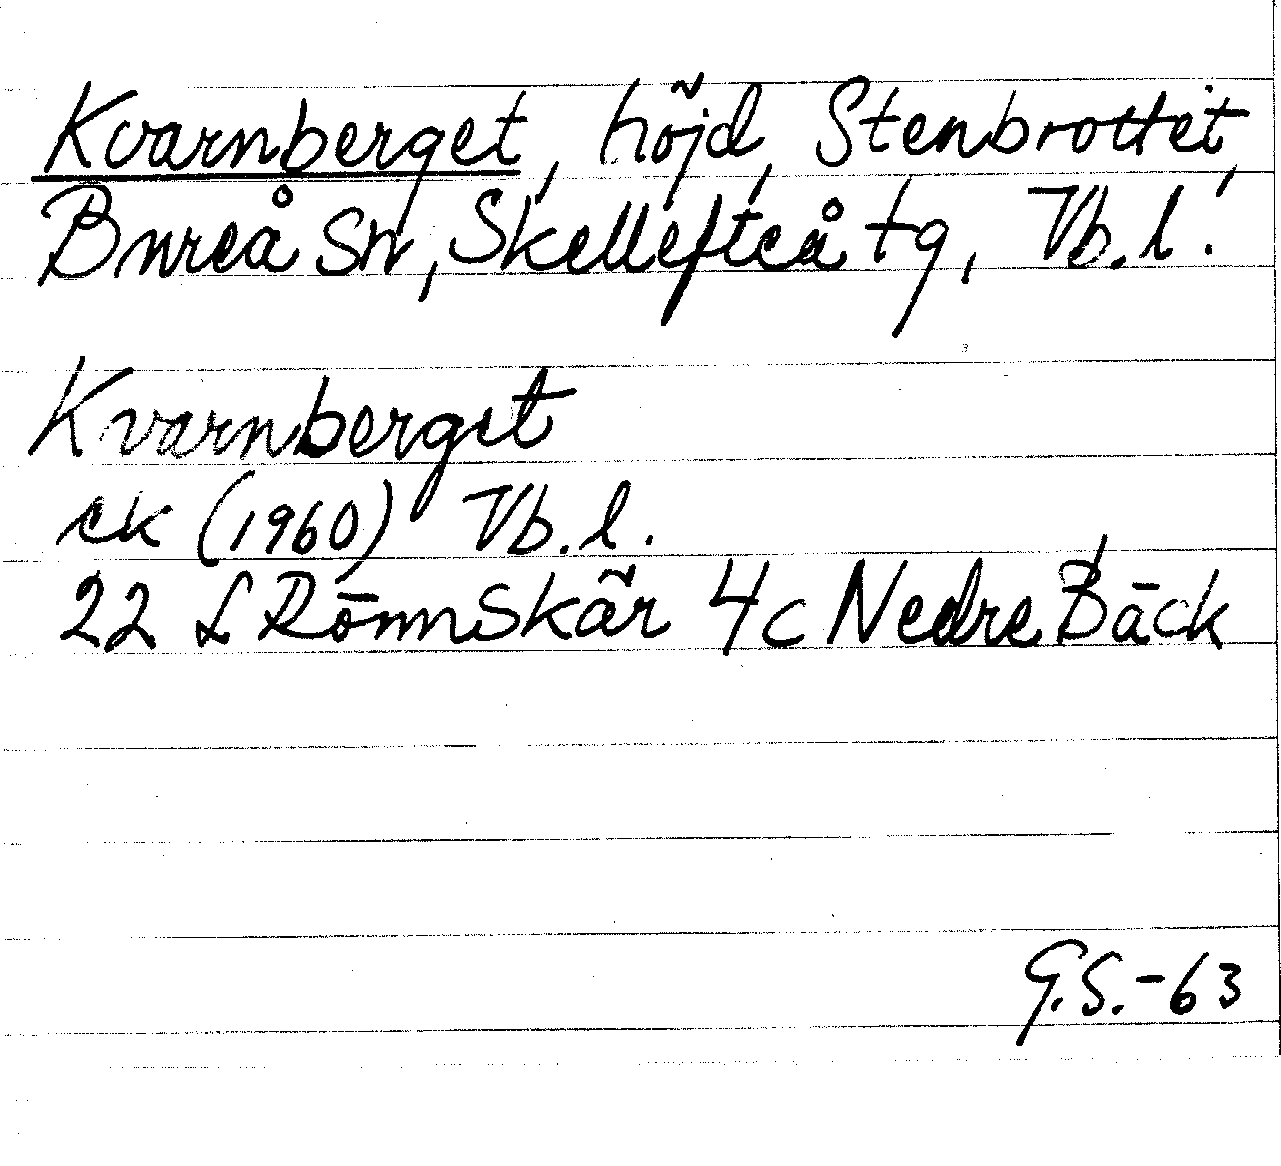 Kvarnberget, höjd, Stenbrottet,
Bureå sn, Skellefteå tg, Vb.l.
Kvarnberget
ek (1960) Vb.l.
22 L Rönnskär 4c Nedre Bäck
G.S.-63